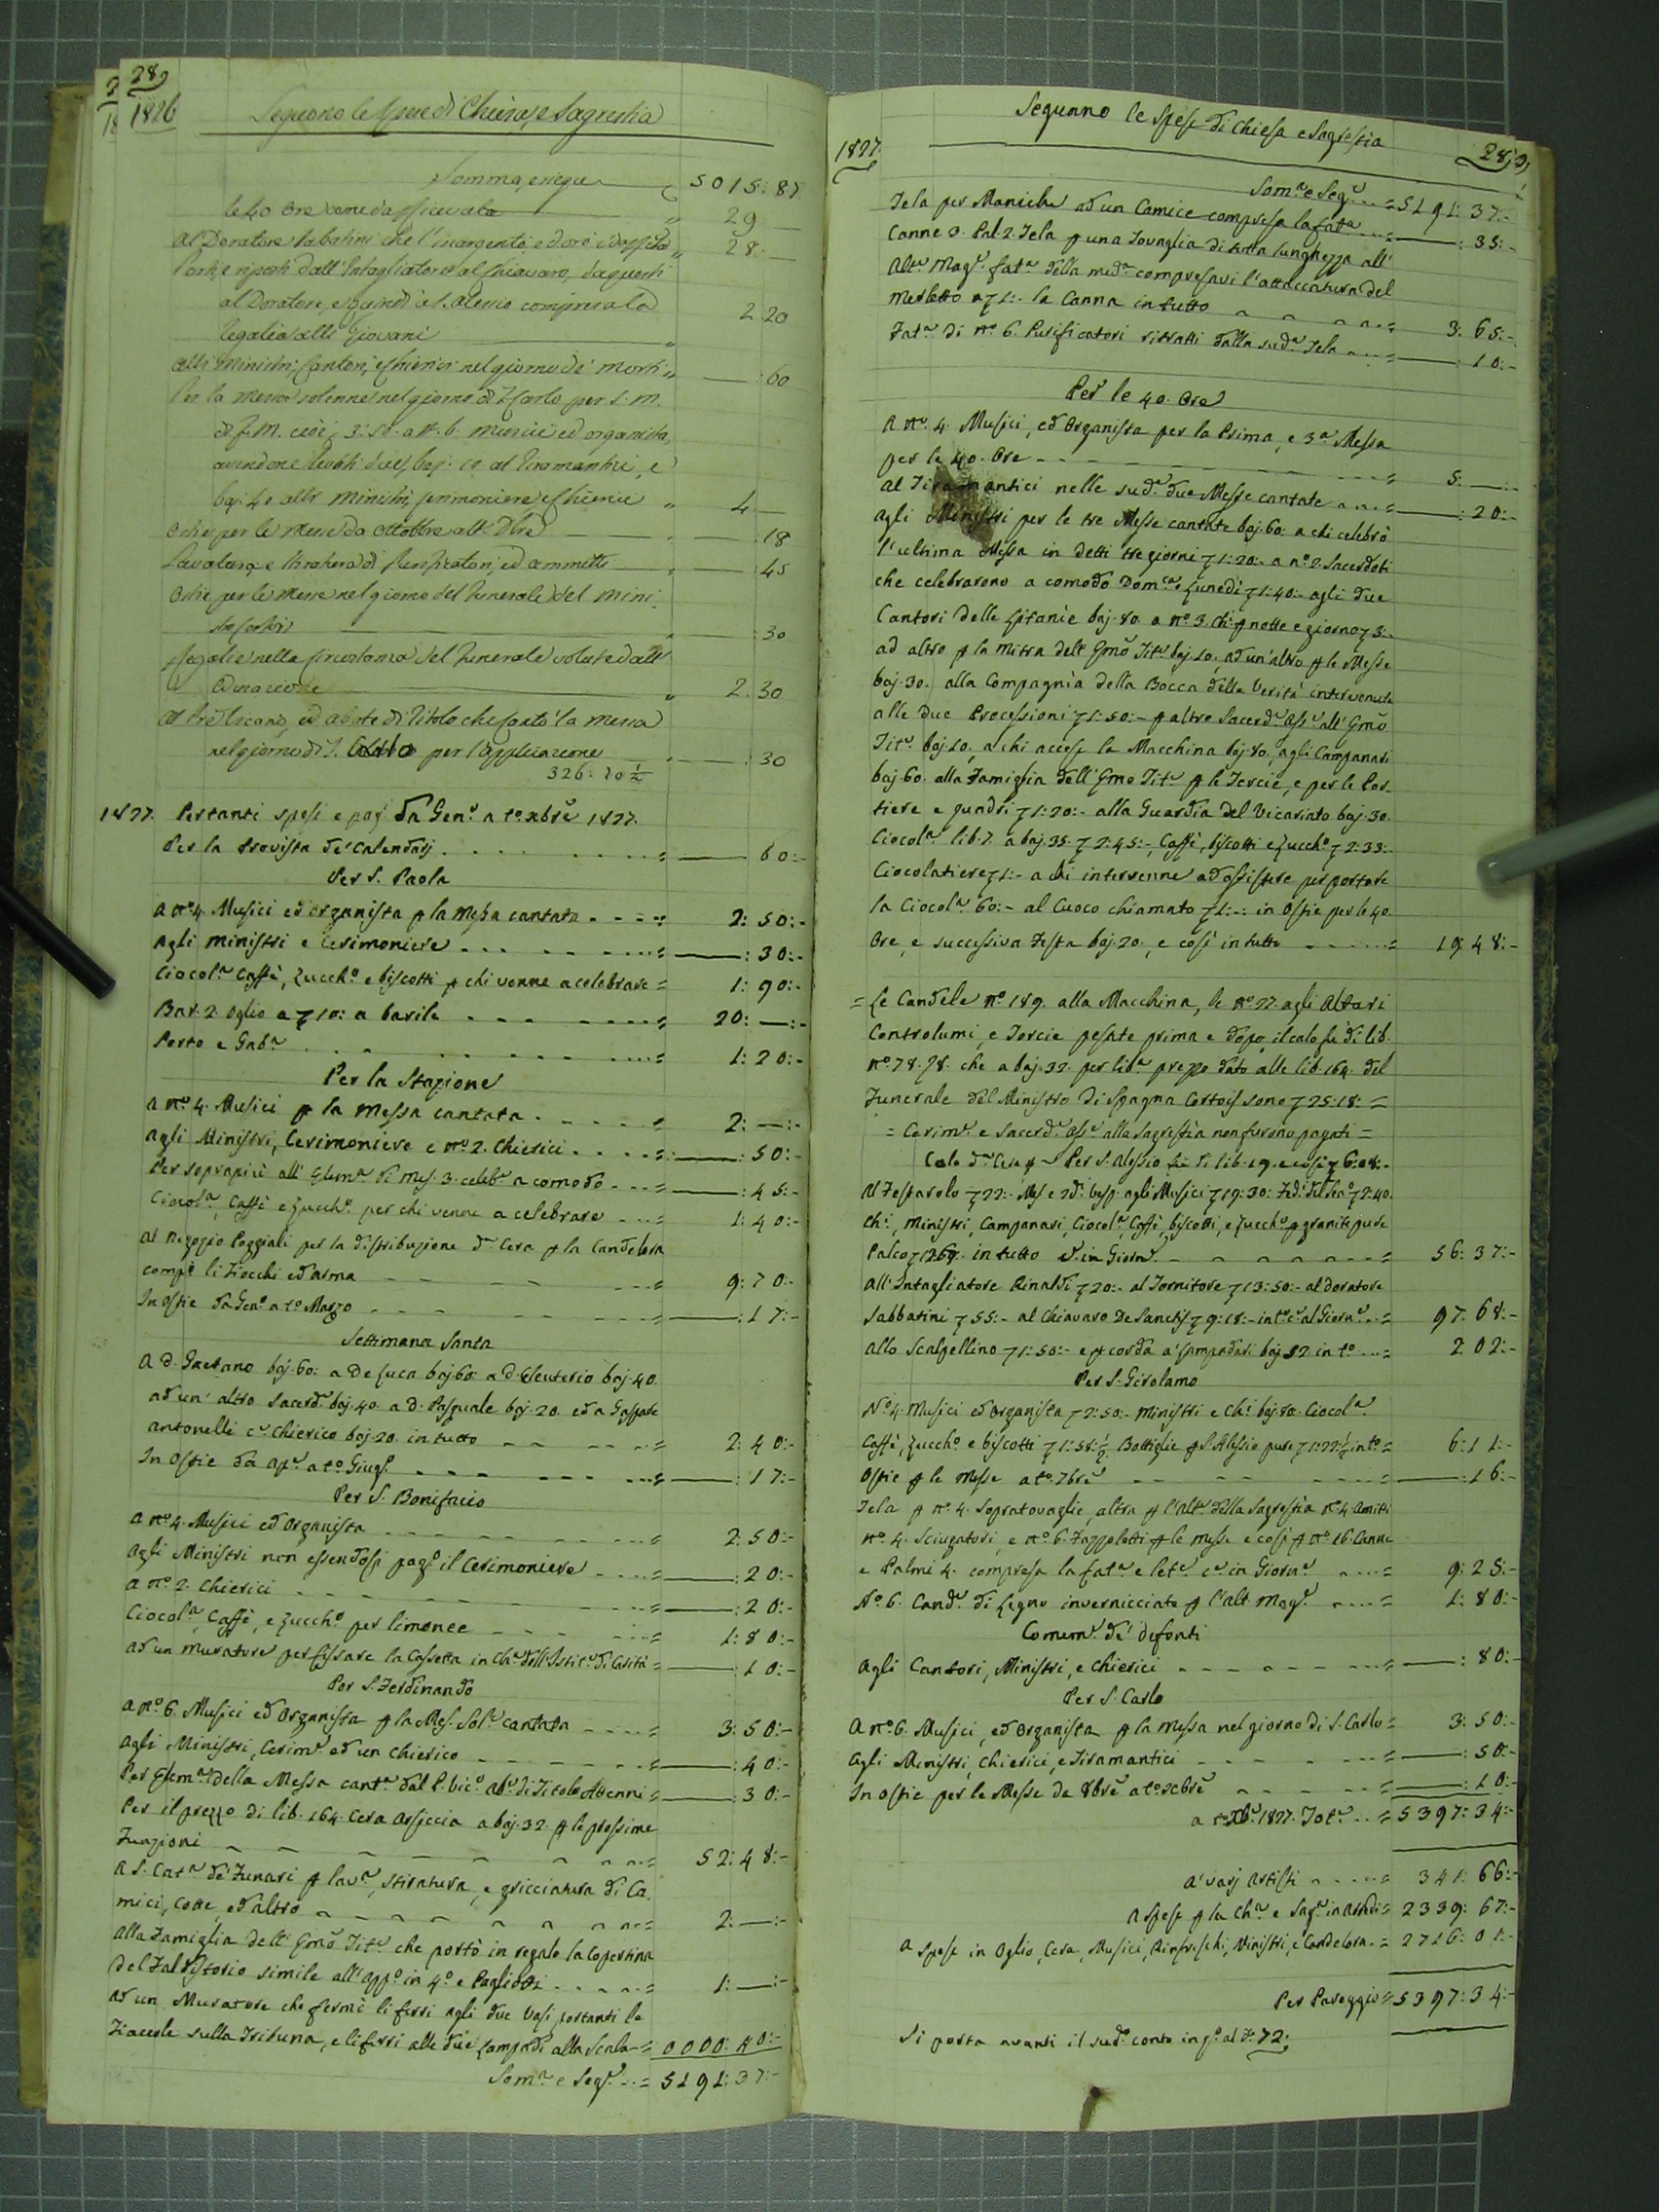 28
1826
Seguono le Spese di Chiesa, e Sagrestia
Somma, e segue 5015:87
le 40 Ore
29
al Doratore Sabatini che l'inargentò, ed orò 28:
Porti, e riporti dall'Intagliatore al Chiavaro, da questi
al Doratore, e quindi a S. Alessio compresa la
regalia alli Giovani 2:20
alli Ministri, Cantori, e Chierici nel giorno de' Morti " :60
Per la Messa solenne nel giorno di S. Carlo per S. M.
3:50 a n. 6. Musici ed organista,
baj: 10 al Tiramantici, e
baj: 40 alli Ministri, Cerimoniere, e Chierici " 4
Ostie per le Messe da Ottobre a tt. Xbre :18
Lavatura, e stiratura di Purificatori, ed ammitti :45
Ostie per le Messe nel giorno del Funerale del Mini-
stro :30
Regalie nella circostanza del Funerale
2:30
nel giorno di S. Carlo per l'applicazione :30
326:20½
1827. Pertanti spesi e pag. da Gen.o a t.o Xbre 1827.
Per la provista de' Calendarj = 60:-
Per S. Paola
A n.o 4. Musici ed organista p la Messa cantata = 2:50:-
Agli Ministri e Cerimoniere = :30:-
Ciocol.a Caffè, Zucch.o e biscotti p chi venne a celebrare = 1:90:-
Bar. 2. Oglio a 10: a barile = 20:—:-
Porto e Gab.a = 1:20:-
Per la Stazione
A n.o 4. Musici p la Messa cantata = 2:—:-
Agli Ministri, Cerimoniere e n.o 2. Chierici = :50:-
Per soprapiù all' Elem.a di Mes. 3. celeb.e a comodo = :45:-
Ciocol.a, Caffè e Zucch.o per chi venne a celebrare = 1:40:-
Al Negozio Poggiali per la distribuzione di Cera p la Candelora
compr. li Fiocchi ed arma = 9:70:-
In Ostie da Gen.o a t.o Marzo = :17:-
Settimana Santa
A D. Gaetano baj. 60: a De Luca baj. 60: a D. Eleuterio baj. 40.
ad un' altro Sacerd. baj. 40. a D. Pasquale baj. 20. ed a Gaspare
Antonelli Chierico baj. 20. in tutto = 2:40:-
In Ostie da Ap.e a t.o Giug.o = :17:-
Per S. Bonifacio
A n.o 4. Musici ed Organista = 2:50:-
Agli Ministri non essendosi pag.o il Cerimoniere = :20:-
A n.o 2. Chierici = :20:-
Ciocol.a, Caffè, e Zucch.o per limonee = 1:80:-
Ad un Muratore per fissare la Cassetta in Ch.a dell'Istit.o di Carità = :10:-
Per S. Ferdinando
A n.o 6. Musici ed Organista p la Mes. Sol.e cantata = 3:50:-
Agli Ministri, Cerim.e ed un Chierico = :40:-
Per Elem.a della Messa cant.a dal P. Vic.o Ab.e di Titolo Attenni = :30:-
Per il prezzo di lib. 164. Cera Arsiccia a baj. 32. p le prossime
Funzioni = 52:48:-
A S. Cat.a de' Funari p lav.a, stiratura, e gricciatura di Ca-
mici, Cotte, ed altro = 2:—:-
Alla Famiglia dell' Emo Tit.e che portò in regalo la Copertina
del Faldistorio simile all'app.o in 4.o e Pagliotti = 1:—:-
Ad un Muratore che fermò li ferri agli due Vasi portanti le
Fiaccole sulla Tribuna, e li ferri alle due Lampadi alla Scala = 0000:40:-
Som.a e Seg.e = 5191:37:-
1827.
Seguono le Spese di Chiesa e Sagrestia
28
Som.a e Seg.e = 5191:37:-
Tela per Maniche ad un Camice compresa la fat.a = :35:-
Canne 3. Pal. 2. Tela p una Tovaglia di tutta lunghezza all'
Alt.e Mag.e fat.a della med.a compresavi l'attaccatura del
Merletto a 1:- la Canna in tutto = 3:65:-
Fat.a di n.o 6. Purificatori ritratti dalla sud.a Tela = :10:-
Per le 40. Ore
A n.o 4. Musici, ed Organista per la Prima, e 3.a Messa
per le 40. Ore = 5:—:-
Al Tiramantici nelle sud.e due Messe cantate = :20:-
Agli Ministri per le tre Messe cantate baj. 60: a chi celebrò
l'ultima Messa in detti tre giorni 1:20:- a n.o 2. Sacerdoti
che celebrarono a comodo Dom.ca e Lunedì 1:40:- agli due
Cantori delle Litanie baj. 80. a n.o 3. Ch.i p notte e giorno 3:-
ad altro p la Mitra dell' Emo Tit.e baj. 10., ad un'altro p le Messe
baj. 30. alla Compagnia della Bocca della Verità intervenuta
alle due Processioni 1:50:- p altro Sacerd.e Ass.e all' Emo
Tit.e baj. 10, a chi accese la Macchina baj. 80, agli Campanari
baj. 60. alla Famiglia dell' Emo Tit.e p le Torcie, e per le Por-
tiere e quadri 1:20:- alla Guardia del Vicariato baj. 30.
Ciocol.a lib. 7. a baj. 35. 2:45:-, Caffè, biscotti e Zucch.o 2:33:-
Ciocolatiere 1:- a chi intervenne ad assistere per portare
la Ciocol.a 60:- al Cuoco chiamato 1:-: in Ostie per le 40.
Ore, e successiva Festa baj. 20., e così in tutto = 19:48:-
= Le Candele n.o 189. alla Macchina, le n.o 22. agli Altari
Controlumi, e Torcie pesate prima e dopo, il calo fù di lib.
n.o 78. che a baj. 32. per lib.a prezzo dato alle lib. 164. del
Funerale del Ministro di Spagna sono 25:18: =
= Cerim.e e Sacerd.e Ass.e alla Sagrestia non furono pagati =
Calo di Cera p Per S. Alessio fù di lib. 19. e così 6:08:-
Al Festarolo 22:- Mes. e 2di Vesp. agli Musici 19:30:
Ch.i, Ministri, Campanari, Ciocol.a Caffè, biscotti, e Zucch.o p granite pure
Palco in tutto in Giorn.e = 56:37:-
All'Intagliatore Rinaldi 20:- al Tornitore 13:50:- al Doratore
Sabbatini 55:- al Chiavaro De Sanctis 9:18:- in t.o al Giorn.e = 97:68:-
Allo Scalpellino 1:50:- e p corda a' Lampadari baj. 52 in t.o = 2:02:-
Per S. Girolamo
N.o 4. Musici ed Organista 2:50:- Ministri e Ch.i baj. 80. Ciocol.a
Caffè, Zucch.o e biscotti 1:58:½ Bottiglie p S. Alessio pure 1:22:½ in t.o = 6:11:-
Ostie p le Messe a t.o 7bre = :16:-
Tela p n.o 4. Sopratovaglie, altra p l'Alt.e della Sagrestia n.o 4. Amitti
n.o 4. Sciugatori, e n.o 6. Fazzoletti p le Messe e così p n.o 16. Canne
e Palmi 4. compresa la fat.a in Giorn.e = 9:25:-
N.o 6. Cand.i di Legno invernicciate p l'Alt. Mag.e = 1:80:-
Comem.e de' defonti
Agli Cantori, Ministri, e Chierici = :80:-
Per S. Carlo
A n.o 6. Musici, ed Organista p la Messa nel giorno di S. Carlo = 3:50:-
Agli Ministri, Chierici, e Tiramantici = :50:-
In Ostie per le Messe da 8bre a t.o Xbre = :10:-
a t.o Xbre 1827. Tot.e = 5397:34:-
A' varj Artisti = 341:66:-
A Spese p la Ch.a e Sag.a in Arredi = 2339:67:-
A Spese in Oglio, Cera, Musici, Rinfreschi, Ministri, e Candelora = 2716:01:-
Per Pareggio = 5397:34:-
Si porta avanti il sud.o conto in q.o al F. 72: